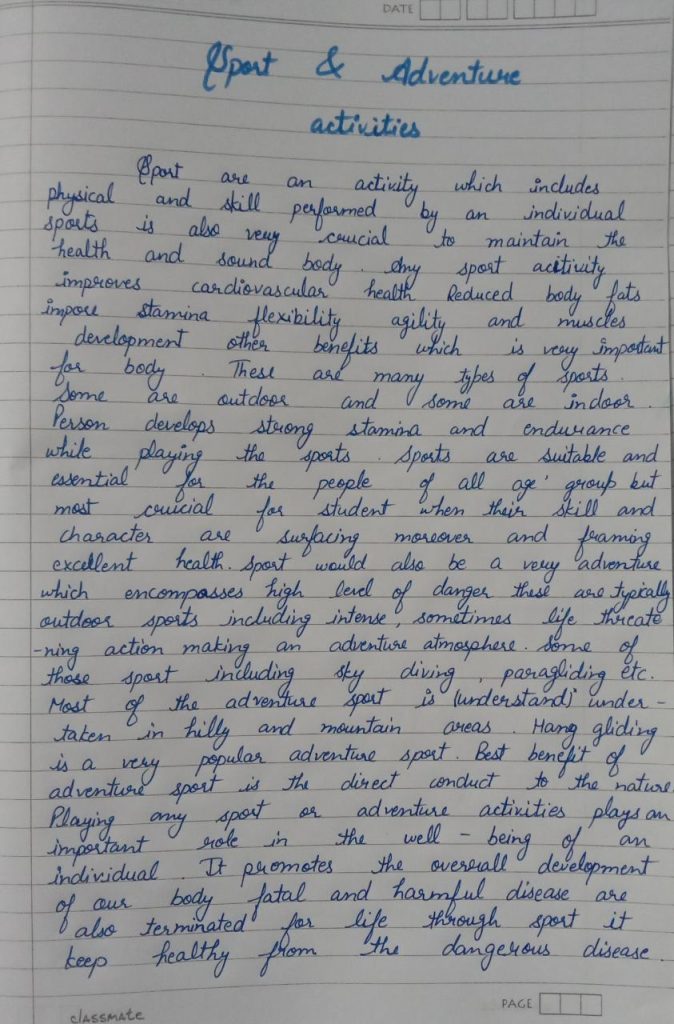 DATE
Sport & Adventure
activities
Sport are an activity which includes
physical and skill performed by an individual
sports is also very crucial to maintain the
health and sound body. Any sport acitivity
improves cardiovascular health Reduced body fats
impore stamina flexibility agility and muscles
development other benefits which is very important
for body. These are many types of sports.
Some are outdoor and some are indoor.
Person develops strong stamina and endurance
while playing the sports. Sports are suitable and
essential for the people of all age' group but
most cruicial for student when their skill and
character are surfacing moreover and framing
excellent health. sport would also be a very adventure
which encompasses high level of danger these are typically
outdoor sports including intense, sometimes life threate
-ning action making an adventure atmosphere. Some of
those sport including sky diving, paragliding etc.
Most of the adventure sport is (understand) under-
taken in hilly and mountain areas. Hang gliding
is a very popular adventure sport. Best benefit of
adventure sport is the direct conduct to the nature.
Playing any sport or adventure activities plays an
important role in the well-being of an
individual. It promotes the overall development
of our body fatal and harmful disease are
also terminated for life through sport it
keep healthy from the dangerous disease.
PAGE
classmate